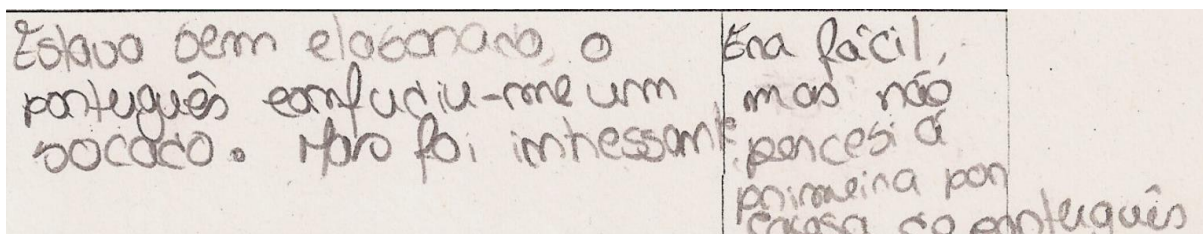 Estava bem elaborado, o
português confudiu-me um
bocado. Mas foi intressante.
Era fácil,
mas não
percesi á
primeira por
causa do português